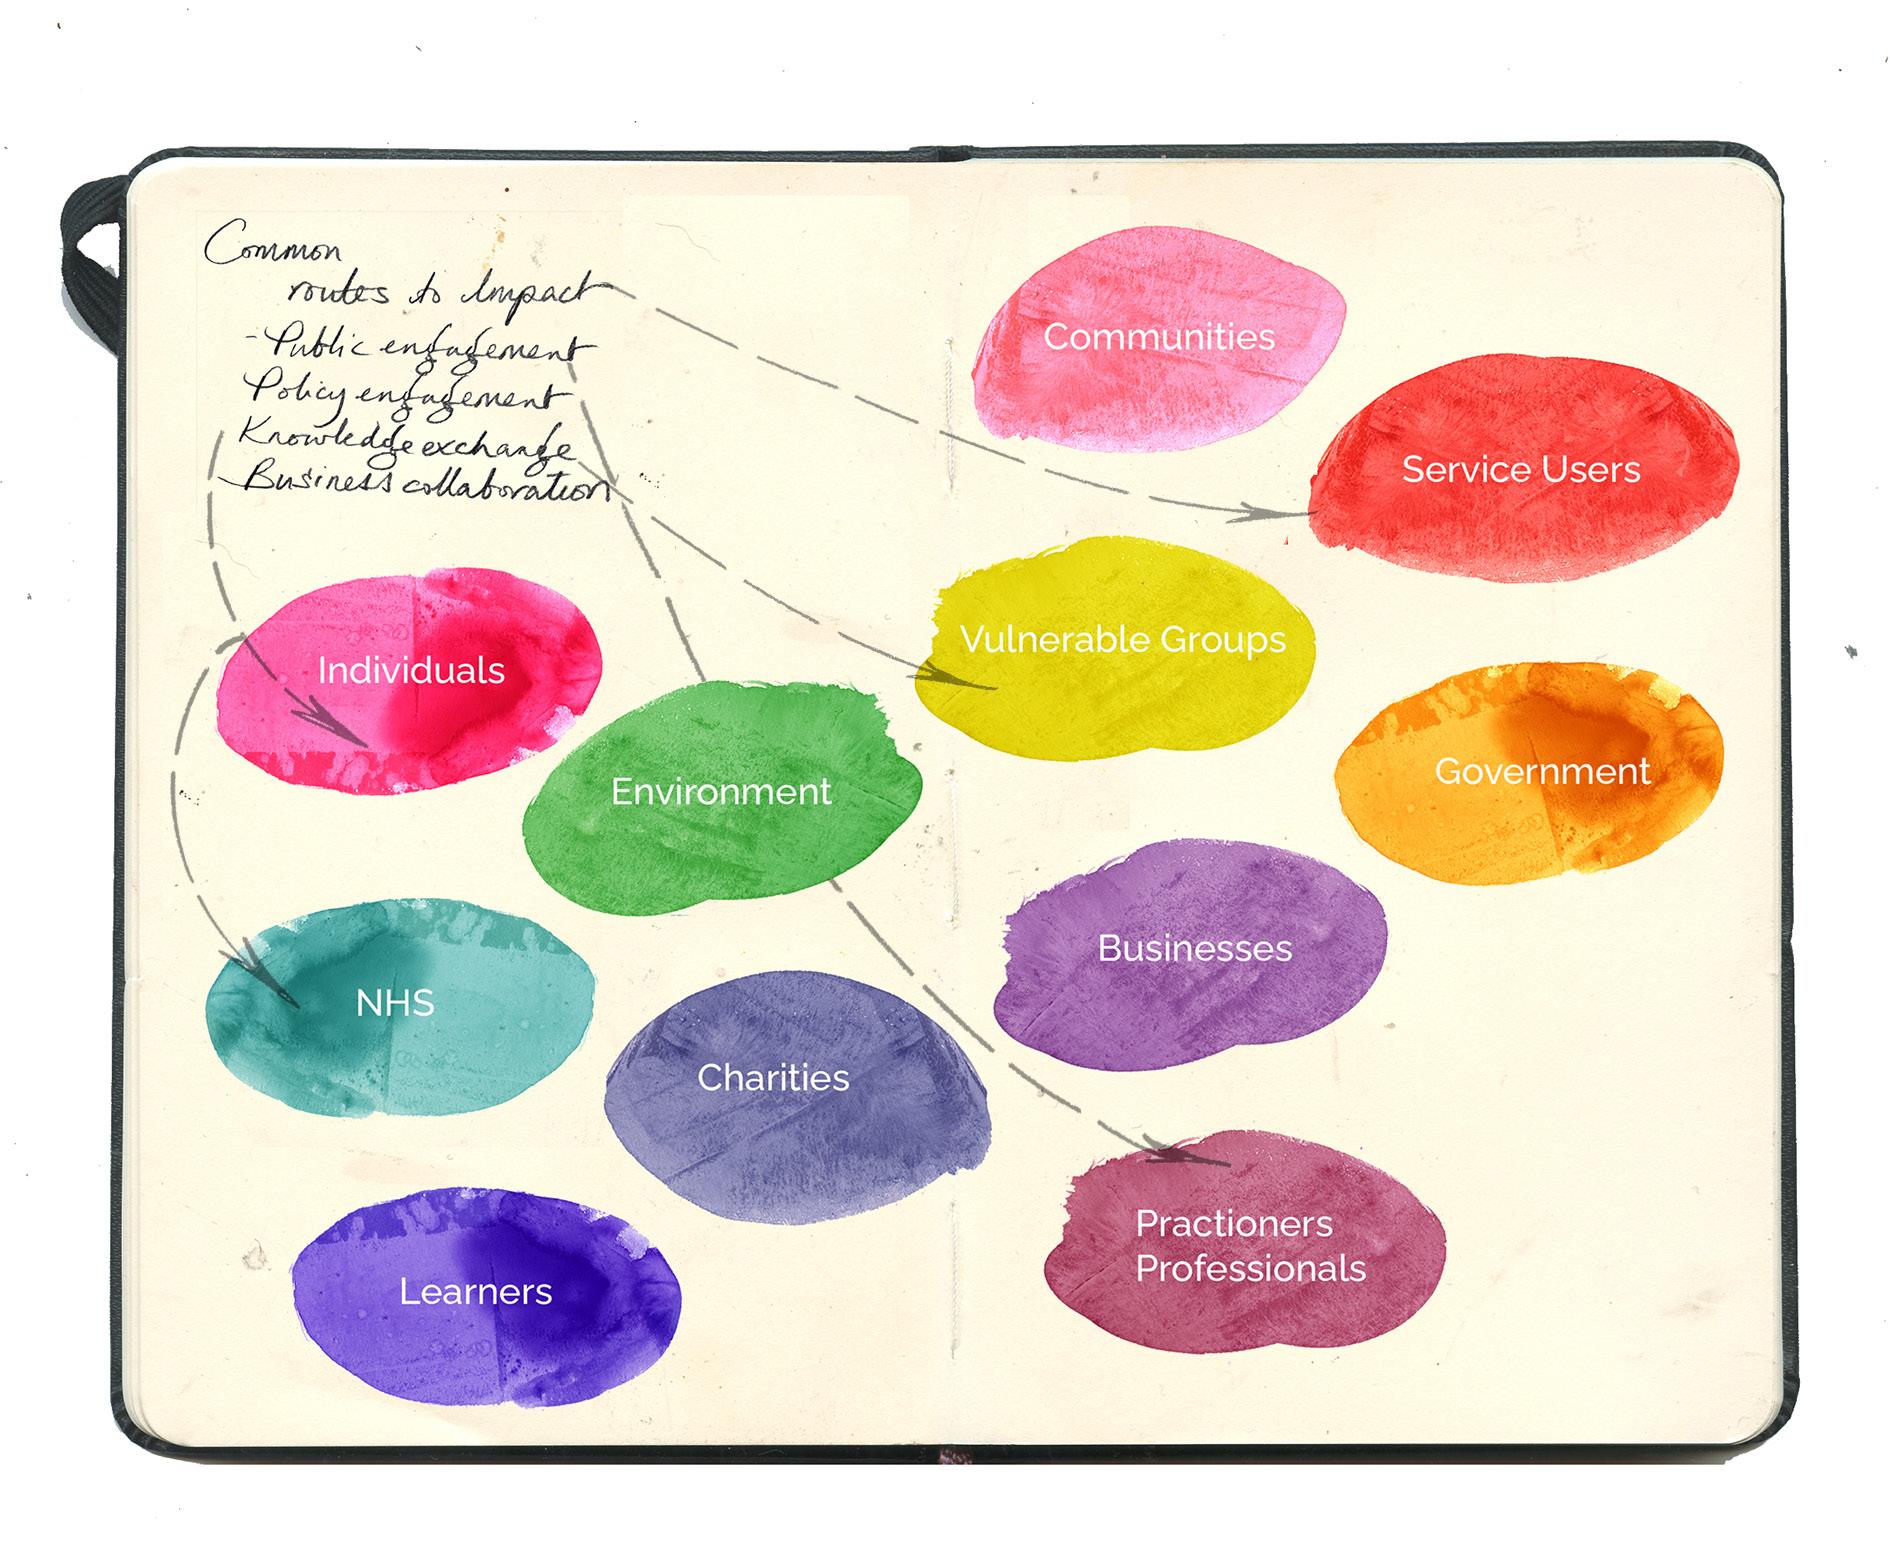 Common
routes to Impact
- Public engagement
Policy engagement
Knowledge exchange
Business collaboration
Communities
Service Users
Individuals
Vulnerable Groups
Environment
Government
Businesses
NHS
Charities
Learners
Practioners
Professionals